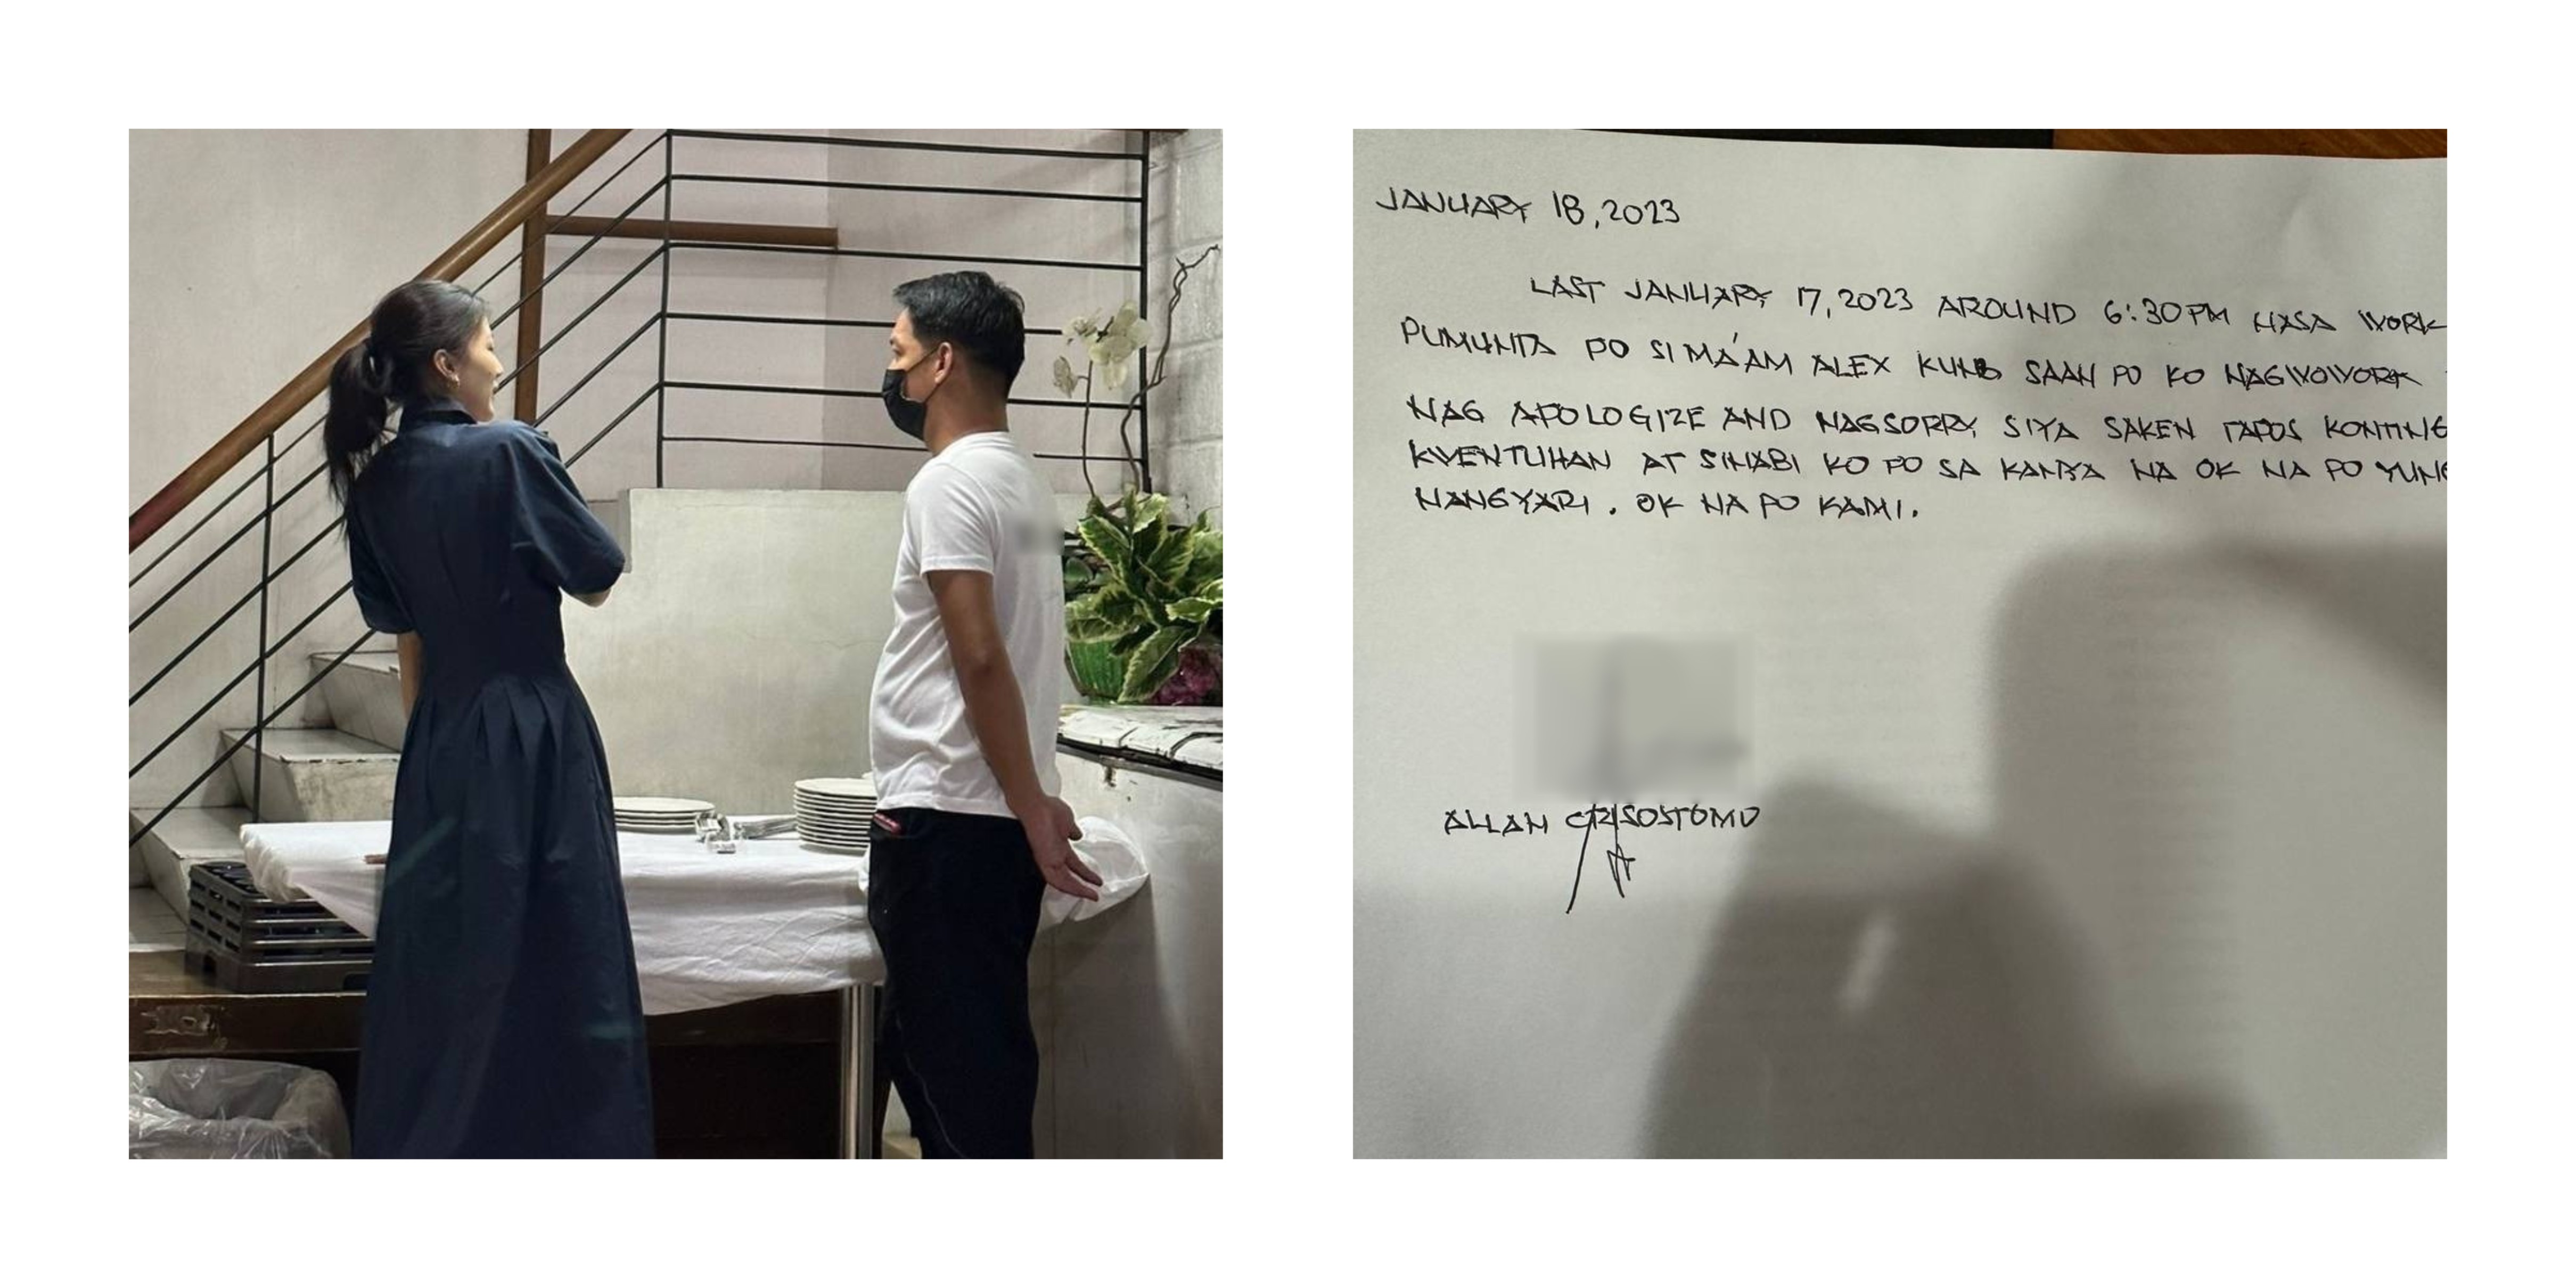 JANUARY 18, 2023
LAST JANUARY 17, 2023 AROUND 6:30PM NASA WORK
PUMUNTA PO SI MA'AM ALEX KUNG SAAN PO KO NAGWOWORK
NAG APOLOGIZE AND NAGSORRY SIYA SAKEN TAPOS KONTING
KWENTUHAN AT SINABI KO PO SA KANYA NA OK NA PO YUNG
NANGYARI. OK NA PO KAMI.
ALLAN CRISOSTOMO